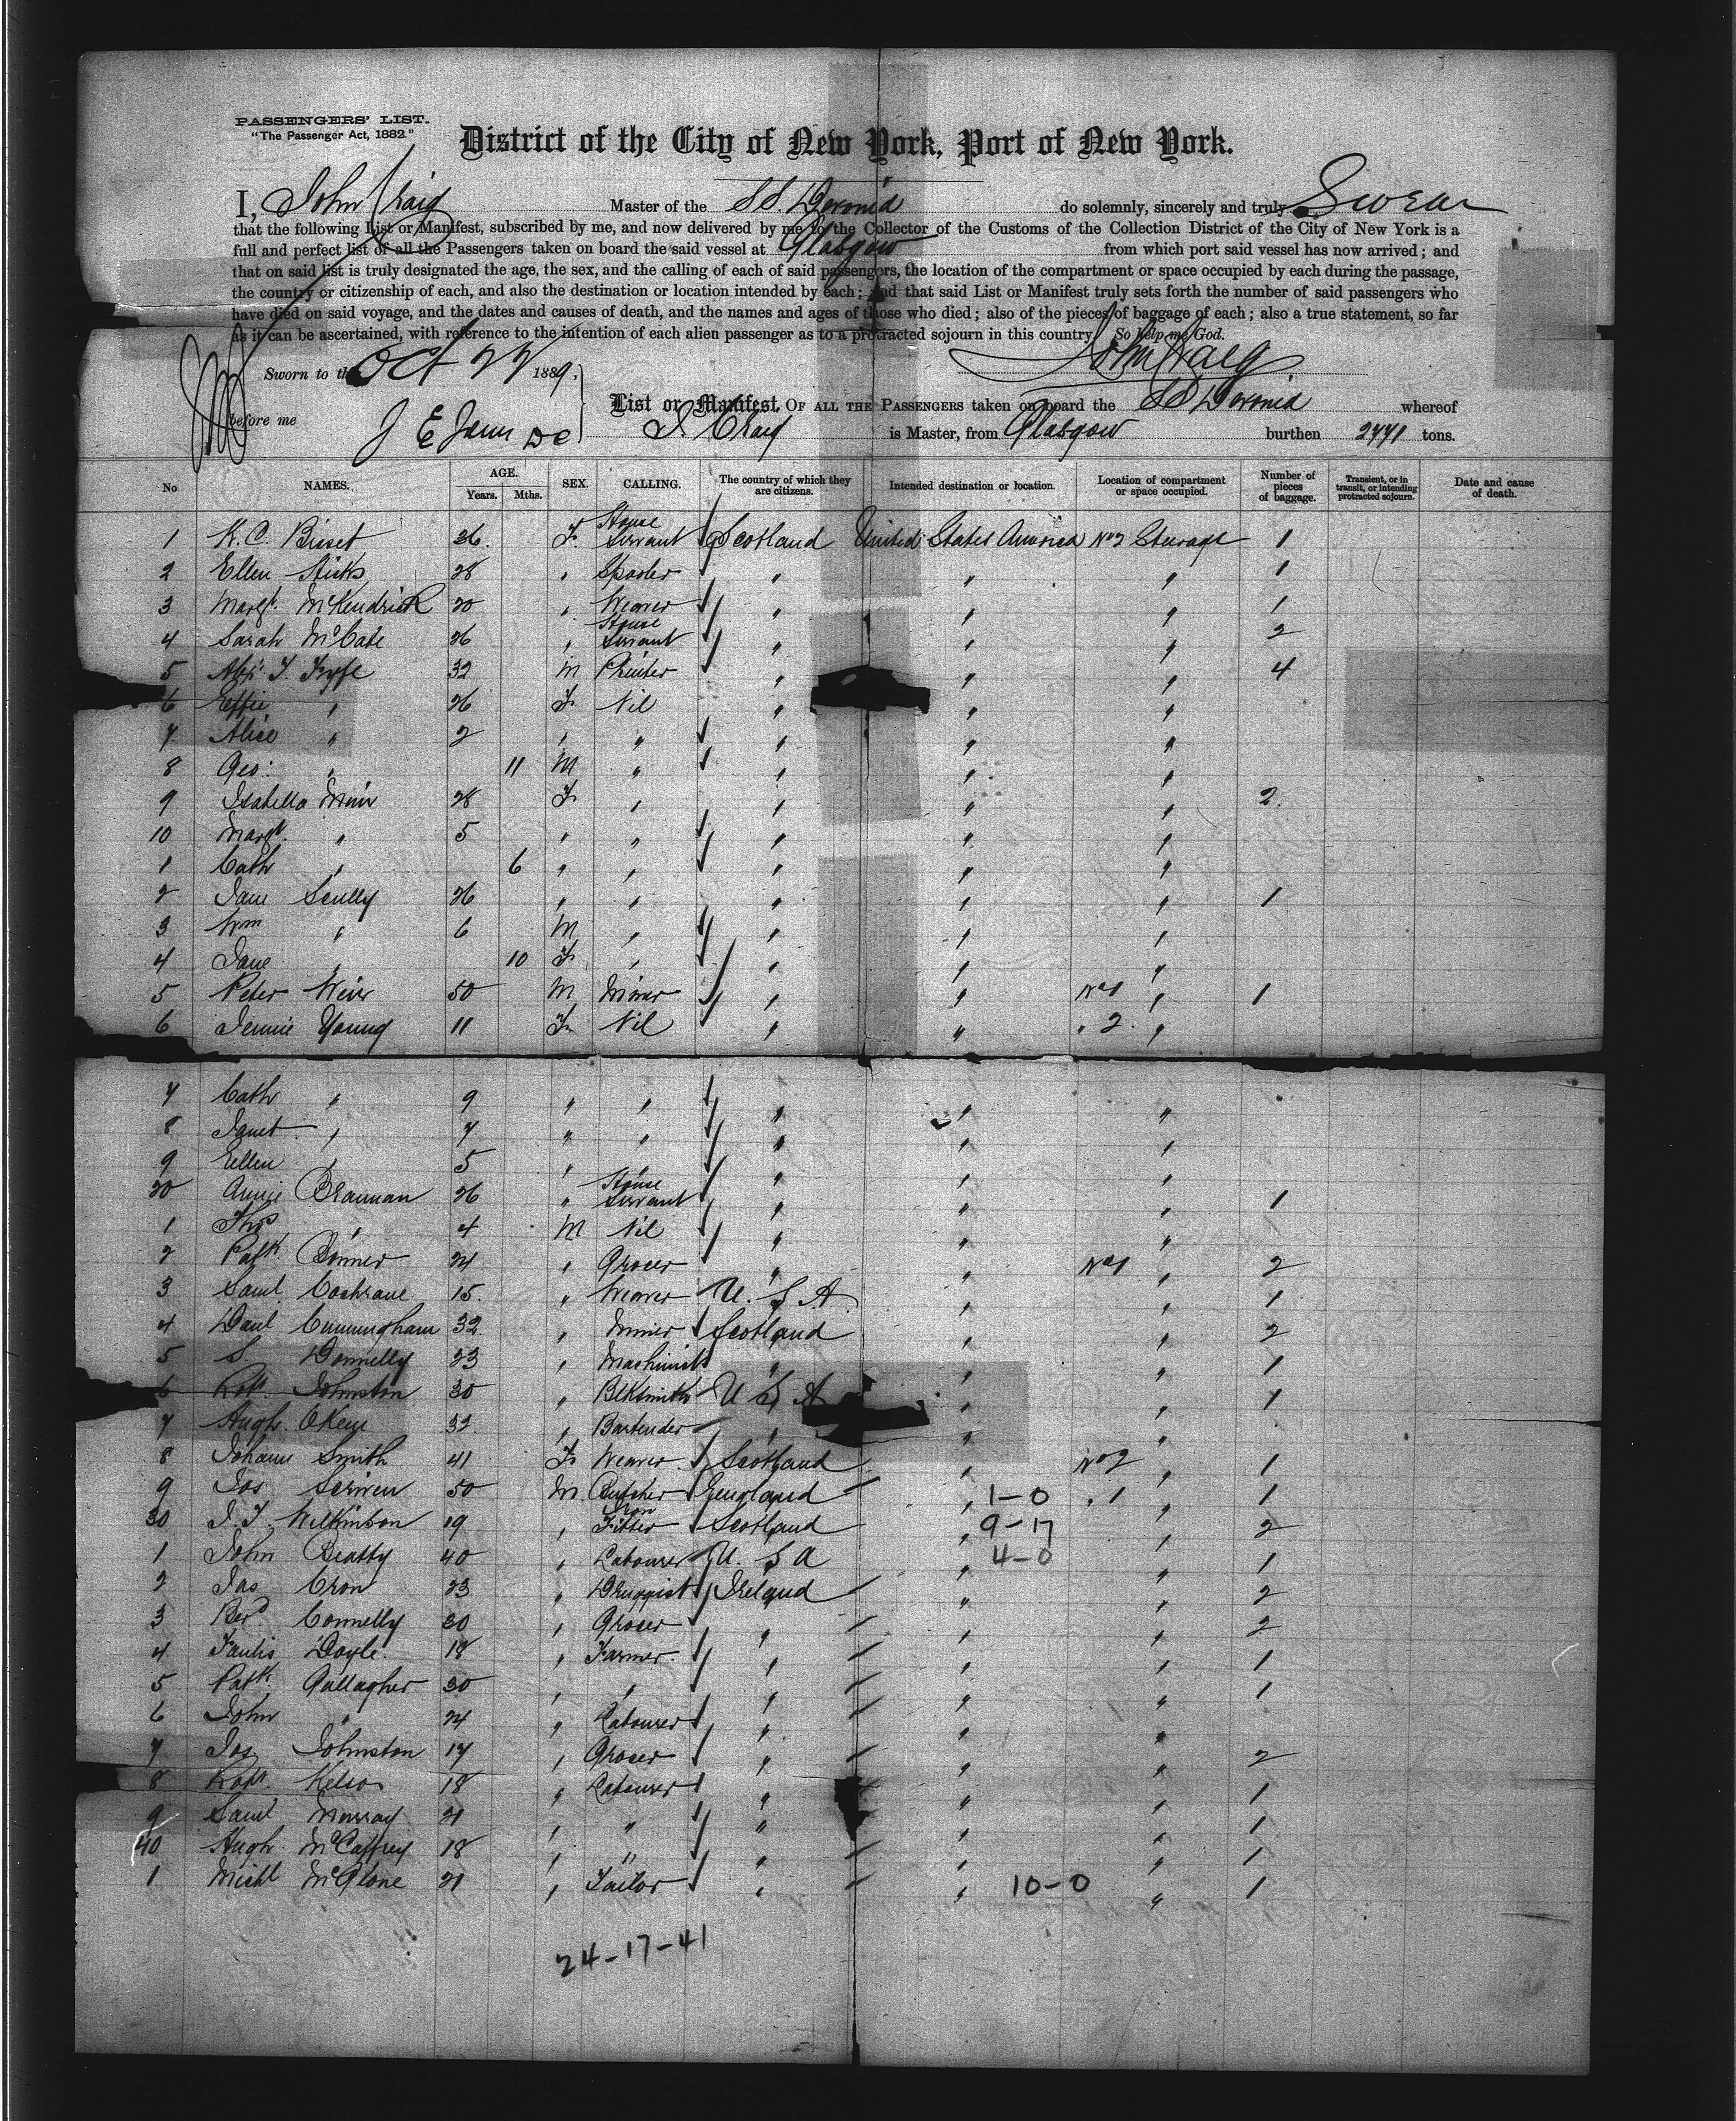 PASSENGERS' LIST.
"The Passenger Act, 1882."
District of the City of New York, Port of New York.
I, John Craig Master of the SS. do solemnly, sincerely and truly Swear
that the following List or Manifest, subscribed by me, and now delivered by me to the Collector of the Customs of the Collection District of the City of New York is a
full and perfect list of all the Passengers taken on board the said vessel at Glasgow from which port said vessel has now arrived; and
that on said list is truly designated the age, the sex, and the calling of each of said passengers, the location of the compartment or space occupied by each during the passage,
the country or citizenship of each, and also the destination or location intended by each; and that said List or Manifest truly sets forth the number of said passengers who
have died on said voyage, and the dates and causes of death, and the names and ages of those who died; also of the pieces of baggage of each; also a true statement, so far
as it can be ascertained, with reference to the intention of each alien passenger as to a protracted sojourn in this country. So help me God.
John Craig
Sworn to this Oct 22 1889,
before me
List or Manifest OF ALL THE PASSENGERS taken on board the SS whereof
J. Craig is Master, from Glasgow burthen 2771 tons.
No NAMES. AGE. Years. Mths. SEX. CALLING. The country of which they are citizens. Intended destination or location. Location of compartment or space occupied. Number of pieces of baggage. Transient, or in transit, or intending protracted sojourn. Date and cause of death.
1 K. C. Bisset 26. F. House Servant Scotland United States America No 2 Steerage 1
2 Ellen Hicks 28 " " " " 1
3 Margt. McKendrick 20 " Weaver " " " 1
4 Sarah McCabe 26 " House Servant " " " 2
5 Alexr. T. Fyffe 32 M Printer " " " 4
6 Effie " 26 F Nil " " "
7 Alice " 2 " " " " "
8 Geo: " 11 M " " " "
9 Isabella Muir 28 F " " " " 2.
10 Margt. " 5 " " " " "
1 Cath " 6 " " " " "
2 Jane Scully 26 " " " " " 1
3 Wm " 6 M " " " "
4 Jane " 10 F " " " "
5 Peter Weir 50 M Miner " " No 1 " 1
6 Jennie Young 11 F Nil " " " 2. "
7 Cath " 9 " " " " "
8 Janet " 7 " " " " "
9 Ellen " 5 " " " " "
20 Annie Brannan 26 " House Servant " " " 1
1 Thos " 4 M Nil " " "
2 Patk. Bonner 24 " Grocer " " No 1 " 2
3 Saml. Cochrane 15. " Weaver U. S A " " 1
4 Danl Cunningham 32. " Miner Scotland " " 2
5 S. Donnelly 23 " Machinist " " " 1
6 Robt. Johnston 30 " Blksmith U S A " " 1
7 Hugh. OKeue 32. " Bartender " " "
8 Johann Smith 41 F Weaver Scotland " No 2 " 1
9 Jos Scriven 50 M. Butcher England " 1-0 " 1 " 1
30 J. T. Wilkinson 19 " Iron Fitter Scotland " 9-17 " 2
1 John Beatty 40 " Labourer U. S A " 4-0 " 1
2 Jas Cron 23 " Druggist Ireland " " 2
3 Berd Connelly 30 " Grocer " " " 2
4 Doyle. 18 " Farmer. " " " 1
5 Patk. Gallagher 30 " " " " " 1
6 John " 24 " Labourer " " "
7 Jos Johnston 17 " Grocer " " " 2
8 Robt. Kelso 18 " Labourer " " " 1
9 Saml Murray 21 " " " " " 1
40 Hugh. McCaffrey 18 " " " " " 1
1 Michl McGlone 21 " Tailor " " 10-0 " 1
24-17-41